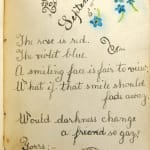 September
The rose is red.
The violet blue.
A smiling face is fair to view.
What if that smile should
fade away.
Would darkness change
a friend so gay.
Yours: